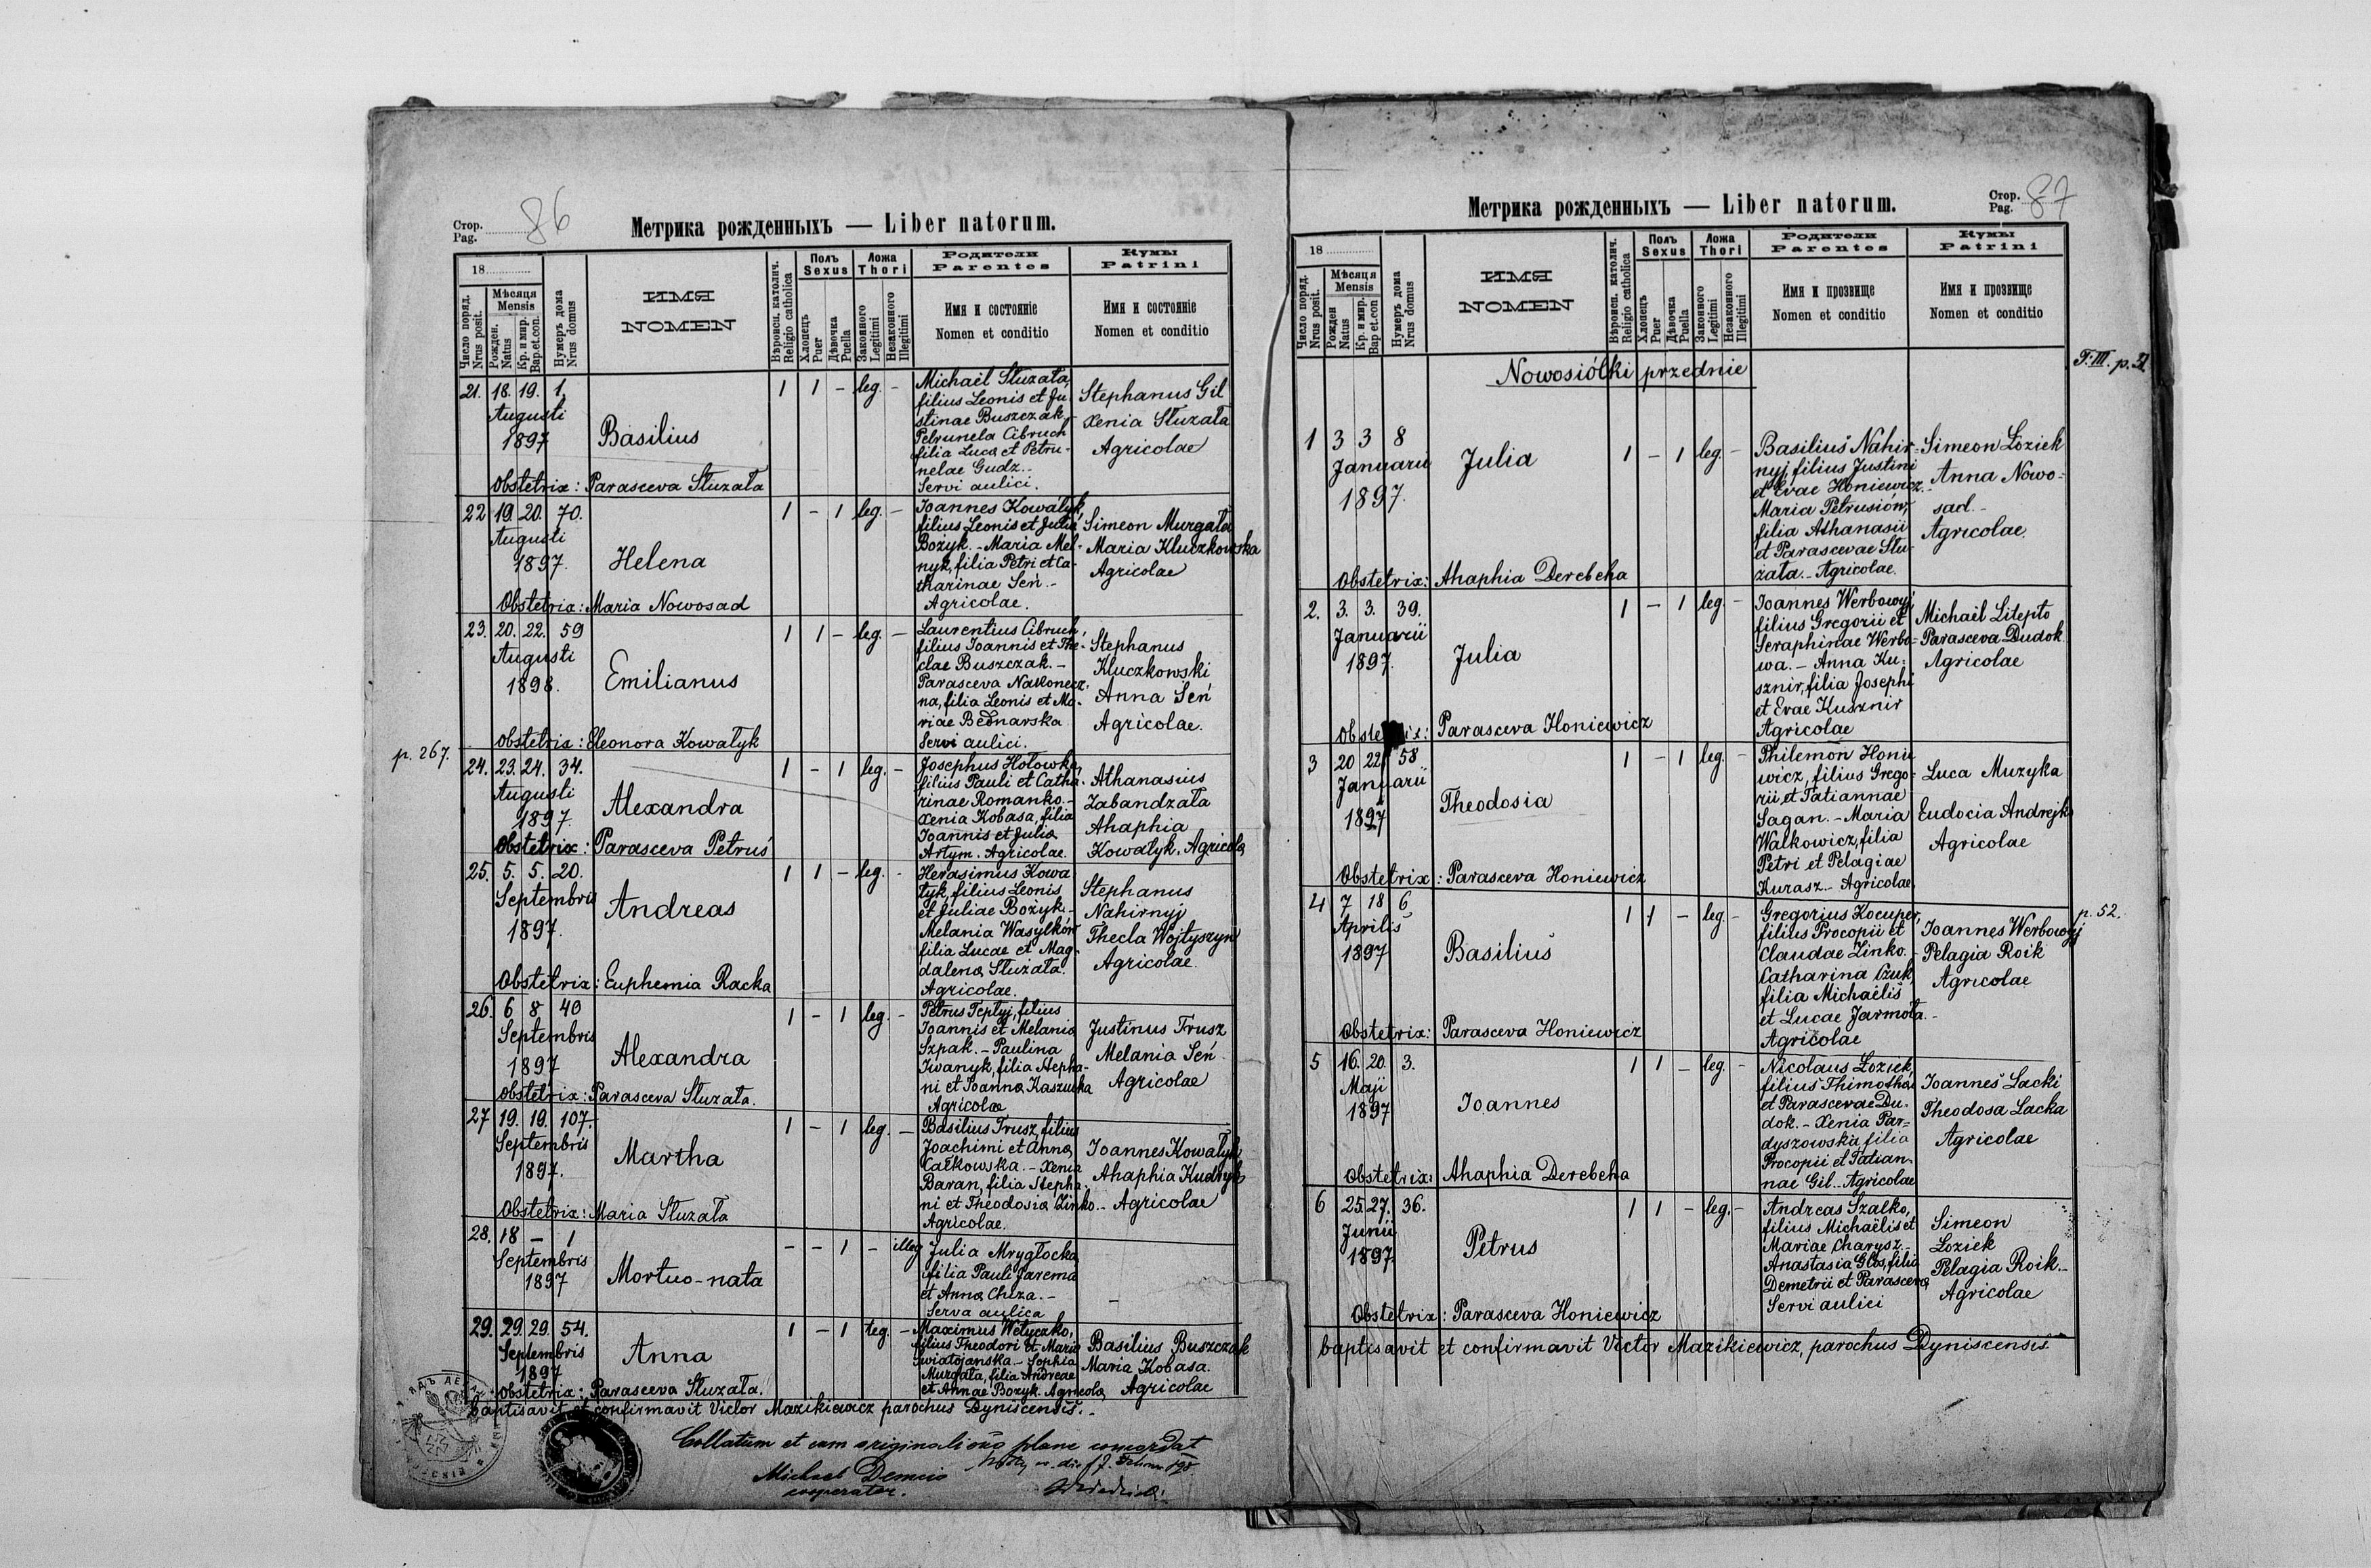 Стор. 86
Pag.
Метрика рожденныхъ — Liber natorum.
18
Число поряд. Nrus posit.
Мѣсяця Mensis
Рожден. Natus
Кр. и мир. Bap. et. con.
Нумеръ дома Nrus domus
ИМЯ
NOMEN
Вѣроисп. католич. Religio catholica
Полъ Sexus
Хлопецъ Puer
Дѣвочка Puella
Ложа Thori
Законного Legitimi
Незаконного Illegitimi
Родители
Parentes
Имя и состояніе
Nomen et conditio
Кумы
Patrini
Имя и состояніе
Nomen et conditio
21. 18. 19. 1.
Augusti
1897
Basilius
1 1 – leg. –
Michaël Słuzała,
filius Leonis et Ju
stinae Buszczak
Petrunela Cibruch
filia Luca et Petru-
nelae Gudz.-
Servi aulici.
Stephanus Gil
Xenia Słuzała
Agricolae
Obstetrix: Parasceva Słuzała
22 19. 20. 70.
Augusti
1897.
Helena
1 – 1 leg. –
Joannes Kowałyk,
filius Leonis et Julia
Bożyk. - Maria Mel-
nyk, filia Petri et Ca-
tharinae Seń.-
Agricolae.
Simeon Murgała
Maria Kluczkowska
Agricolae
Obstetrix: Maria Nowosad
23. 20. 22. 59
Augusti
1898.
Emilianus
1 1 – leg. –
Laurentius Cibruch,
filius Joannis et The-
clae Buszczak.-
Parasceva Nakonecz-
na, filia Leonis et Ma-
riae Bednarska
Servi aulici.
Stephanus
Kluczkowski
Anna Seń
Agricolae.
Obstetrix: Eleonora Kowałyk
p. 267.
24. 23. 24. 34.
Augusti
1897.
Alexandra
1 – 1 leg. –
Josephus Hołowka,
filius Pauli et Catha-
rinae Romanko.-
Xenia Kobasa, filia
Joannis et Julia
Artym. Agricolae.
Athanasius
Zabandzała
Ahaphia
Kowałyk. Agricola
Obstetrix: Parasceva Petruś
25. 5. 5. 20.
Septembris
1897.
Andreas
1 1 – leg. –
Herasimus Kowa
łyk, filius Leonis
et Juliae Bożyk.-
Melania Wasylków
filia Lucae et Mag-
dalena Słuzała.
Agricolae.
Stephanus
Nahirnyj
Thecla Wojtyszyn
Agricolae.
Obstetrix: Euphemia Racka
26. 6 8 40
Septembris
1897
Alexandra
1 – 1 leg. –
Petrus Teptyj, filius
Joannis et Melania
Szpak. - Paulina
Iwanyk, filia Stepha-
ni et Joanna Kaszucka
Agricolae
Justinus Trusz
Melania Seń
Agricolae
Obstetrix: Parasceva Słuzała.
27 19. 19. 107.
Septembris
1897.
Martha
1 – 1 leg. –
Basilius Trusz, filius
Joachimi et Anna
Całkowska. - Xenia
Baran, filia Stepha-
ni et Theodosia Zinko.-
Agricolae.
Joannes Kowałyk
Ahaphia Kudryk
Agricolae
Obstetrix: Maria Słuzała
28. 18 – 1
Septembris
1897
Mortuo-nata
– – 1 – illeg
Julia Mrygłocka
filia Pauli Jarema
et Anna Chiza.-
Serva aulica
–
29. 29. 29. 54.
Septembris
1897
Anna
1 – 1 leg. –
Maximus Wełyczko,
filius Theodori et Maria
Swiatojanska - Sophia
Murgała, filia Andreae
et Annae Bozyk. Agricola
Basilius Buszczak
Maria Kobasa.
Agricolae
Obstetrix: Parasceva Słuzała.
baptisavit et confirmavit Victor Mazikiewicz parochus Dyniscensis.-
Collatum et cum originali suo plane concordat
Michael Demcio
cooperator.
Стор. 87
Pag.
Метрика рожденныхъ — Liber natorum.
18
Число поряд. Nrus posit.
Мѣсяця Mensis
Рожден Natus
Кр. и мир. Bap et. con
Нумеръ дома Nrus domus
ИМЯ
NOMEN
Вѣроисп. католич. Religio catholica
Полъ Sexus
Хлопецъ Puer
Дѣвочка Puella
Ложа Thori
Законного Legitimi
Незаконного Illegitimi
Родители
Parentes
Имя и прозвище
Nomen et conditio
Кумы
Patrini
Имя и прозвище
Nomen et conditio
Nowosiółki przednie
T. III. p. 21.
1 3 3 8
Januarii
1897.
Julia
1 – 1 leg. –
Basilius Nahir-
nyj, filius Justini
et Evae Honiewicz.-
Maria Petrusiów,
filia Athanasii
et Parascevae Słu-
zała. - Agricolae.
Simeon Łoziek
Anna Nowo-
sad.-
Agricolae.
Obstetrix: Ahaphia Derebeha
2. 3. 3. 39.
Januarii
1897.
Julia
1 – 1 leg. –
Joannes Werbowyj,
filius Gregorii et
Seraphinae Werbo-
wa. - Anna Ku-
sznir, filia Josephi
et Evae Kusznir
Agricolae
Michaël Litepto
Parasceva Dudok.
Agricolae
Obstetrix: Parasceva Honiewicz
3 20 22 58
Januarii
1897
Theodosia
1 – 1 leg. –
Philemon Honie
wicz, filius Grego-
rii, et Tatiannae
Sagan. - Maria
Walkowicz, filia
Petri et Pelagiae
Kurasz - Agricolae.
Luca Muzyka
Eudocia Andrejko
Agricolae
Obstetrix: Parasceva Honiewicz
4 7 18 6
Aprilis
1897
Basilius
1 1 – leg. –
Gregorius Kocuper,
filius Procopii et
Claudae Zinko.-
Catharina Czuk,
filia Michaëlis
et Lucae Jarmoła.-
Agricolae
Joannes Werbowyj
Pelagia Roik
Agricolae
p. 52.
Obstetrix: Parasceva Honiewicz
5 16. 20. 3.
Maji
1897
Joannes
1 1 – leg. –
Nicolaus Łoziek,
filius Thimothei
et Parascevae Du-
dok. - Xenia Par-
dyszowska, filia
Procopii et Tatian-
nae Gil. - Agricolae
Joannes Lacki
Theodosa Lacka
Agricolae
Obstetrix: Ahaphia Derebeha
6 25. 27. 36.
Junii
1897.
Petrus
1 1 – leg. –
Andreas Szalko,
filius Michaëlis et
Mariae Charysz.-
Anastasia Głos, filia
Demetrii et Parasceva
Servi aulici
Simeon
Łoziek
Pelagia Roik.-
Agricolae
Obstetrix: Parasceva Honiewicz
baptisavit et confirmavit Victor Mazikiewicz, parochus Dyniscensis.